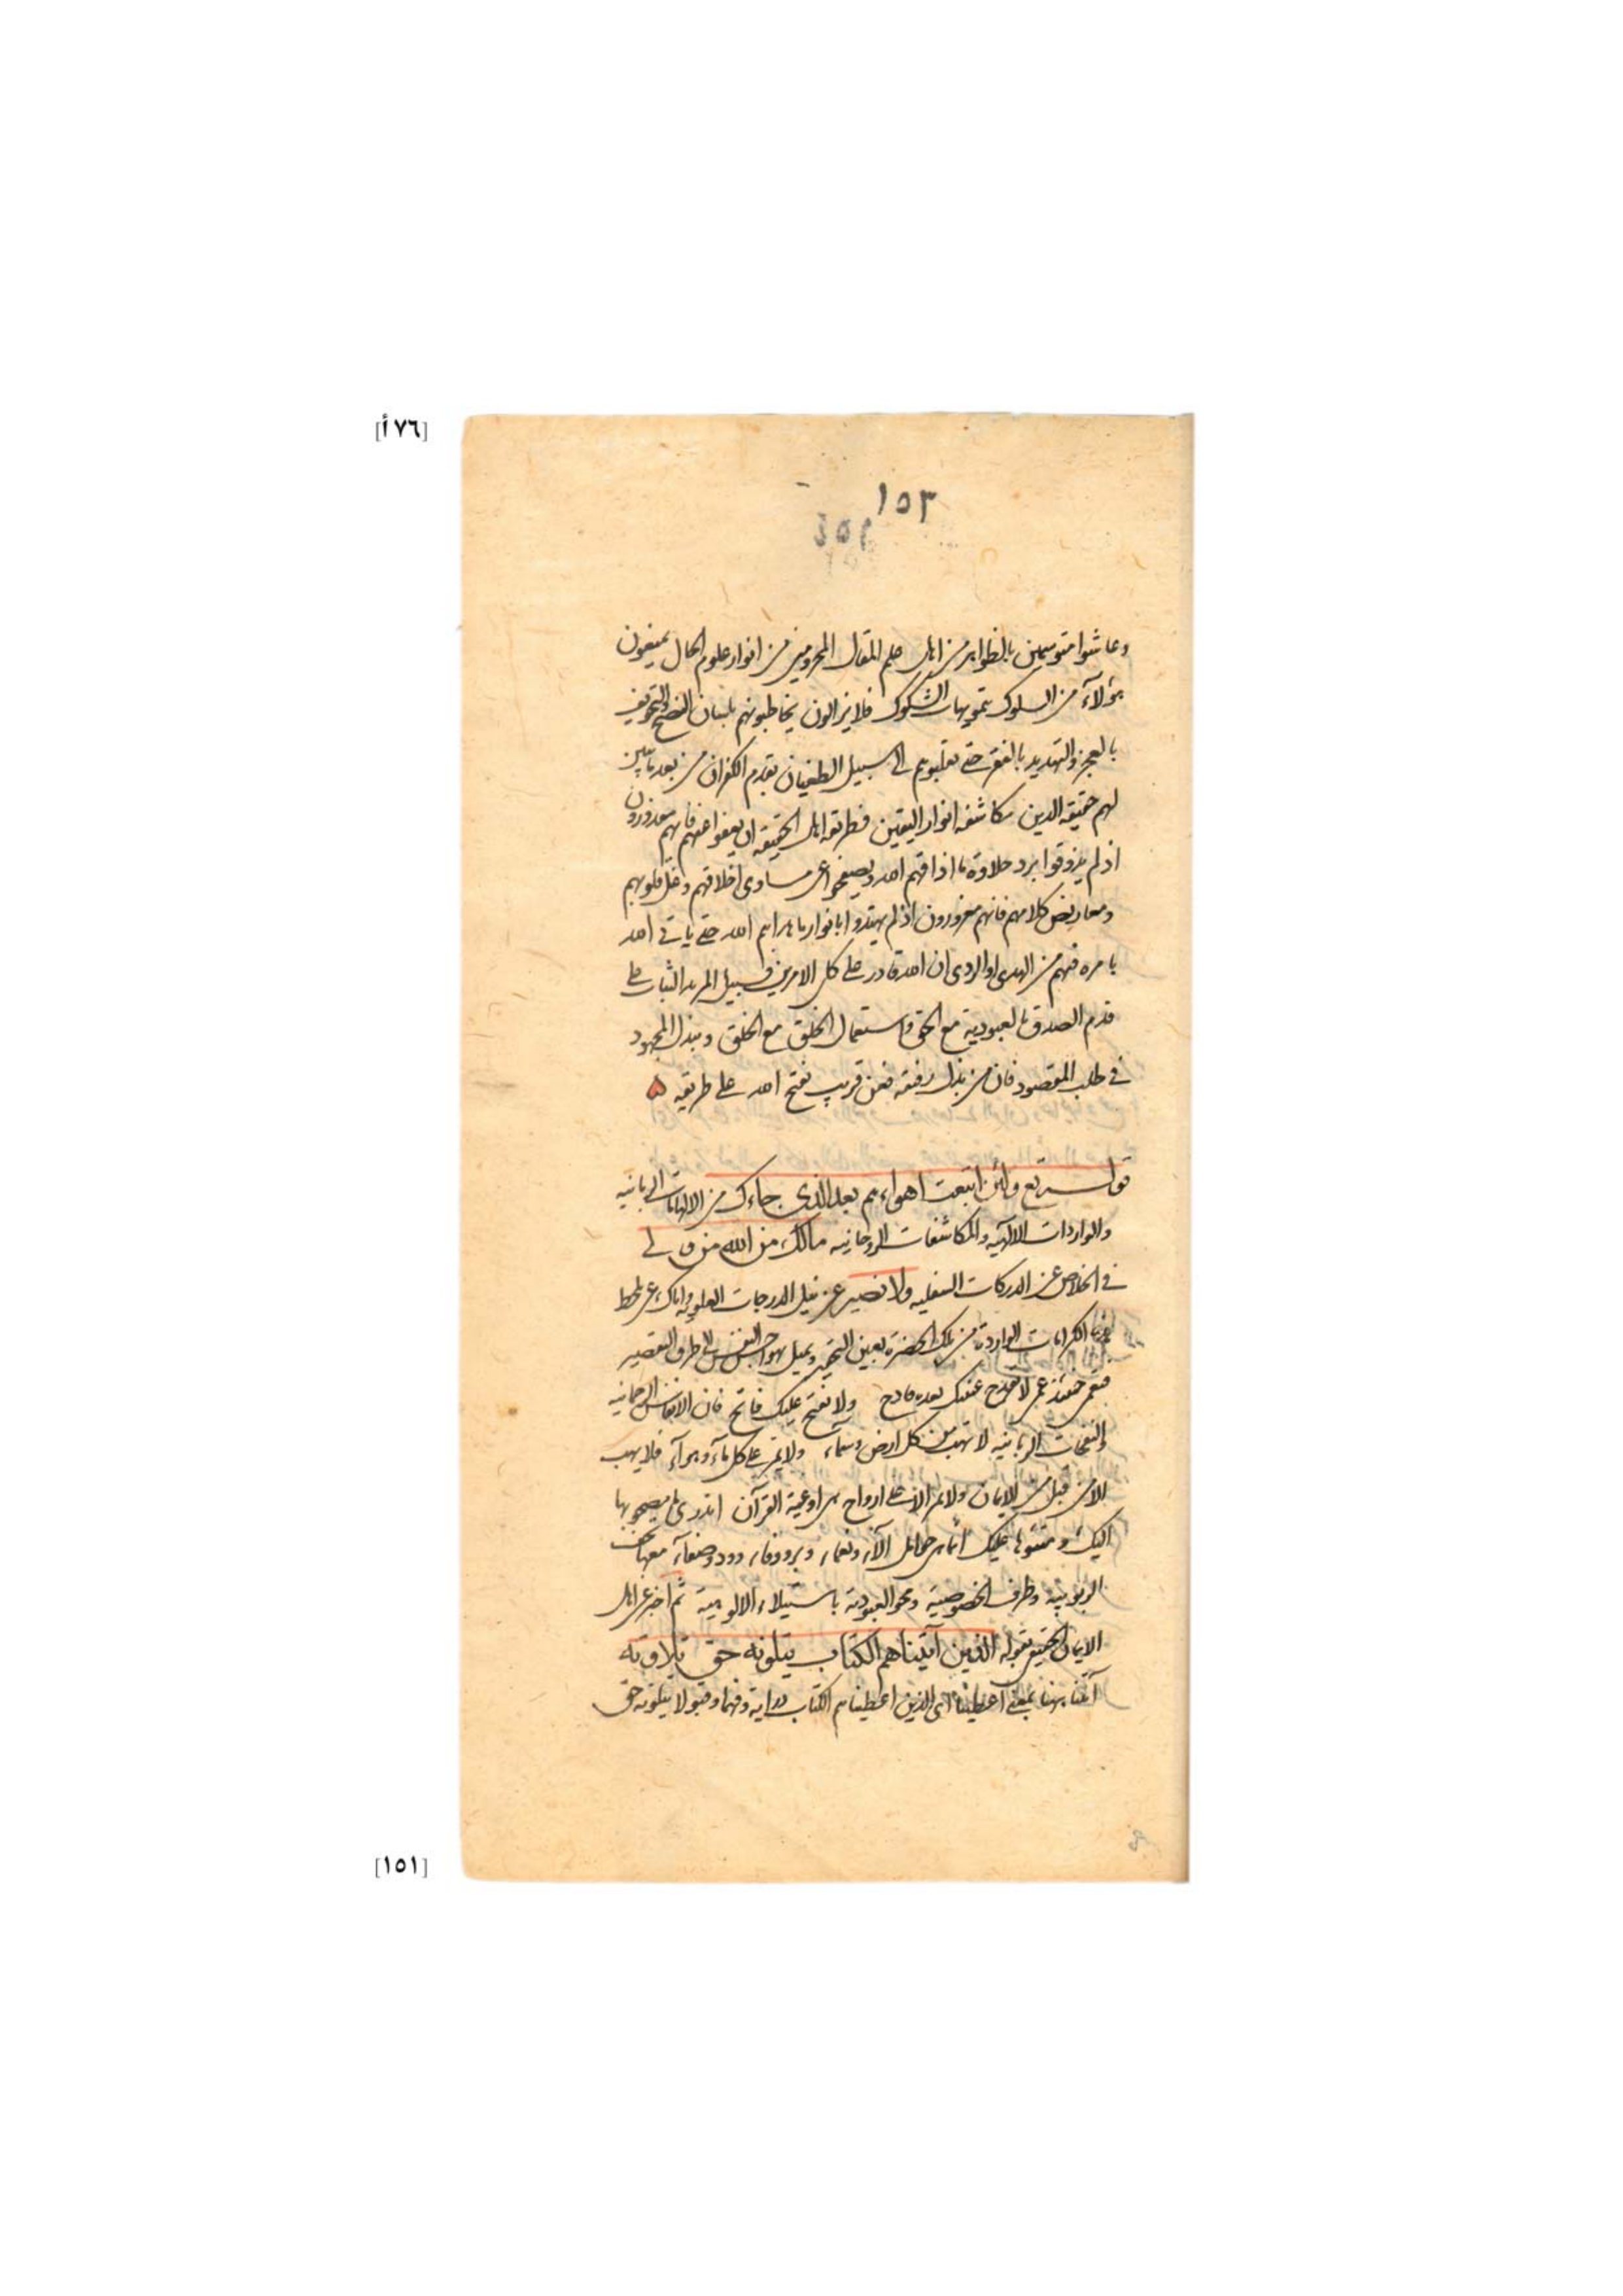 [٧٦أ]
١٥٣
وعاشوا متوسمين بالظواهر من اهل علم المقال المحرومين من انوار علوم الحال يمنعون
هؤلاء من السلوك بتمويهات الشكوك فلا يزالون يخاطبونهم بلسان النصح والتخويف
بالعجز والتهديد بالفقر حتى يقلبوهم الى سبيل الطغيان بقدم الكفران من بعد ما تبين
لهم حقيقة الدين مكاشفة انوار اليقين فطريقة اهل الحقيقة ان يعفوا عنهم فانهم معذورون
اذ لم يذوقوا برد حلاوة ما اذاقهم الله ويصفحوا عن مساوى اخلاقهم وغل قلوبهم
ومعاريض كلامهم فانهم مغرورون اذ لم يهتدوا بانوار ما هداهم الله حتى ياتى الله
بامره فيهم من الهدى او الردى ان الله قادر على كل الامرين فسبيل المريد الثبات على
قدم الصدق بالعبودية مع الحق واستعمال الخلق مع الخلق وبذل المجهود
فى طلب المقصود فان من بذل فعن قريب يفتح الله على طريقه
قوله تع ولئن اتبعت اهواءهم بعد الذى جاءك من الالهامات الربانيه
والواردات الالهيه والمكاشفات الروحانيه مالك من الله من ولى
فى الخلاص عن الدركات السفليه ولا نصير عن نيل الدرجات العلويه واياك
الكرامات الوارده من تلك الحضرة بعين التحير ويميل هواجس النفس الى طرف التقصير
فتعمى حينئذ ولا يفتح عليك فاتح فان الانفاس الرحمانيه
والنفحات الربانيه لا تهب من كل ارض وسماء ولا تمر على كل ماء وهواء فلا يهب
الا من قبل من الايمان ولا تمر الا على ارواح هى اوعية القرآن اتدرى ما يصحبونها
اليك عليك الآء ونعماء
الربوبية وظرف الخصوصية ومحو العبودية باستيلاء الالوهية ثم اخبر عن اهل
الايمان الحقيقى بقوله الذين آتيناهم الكتاب يتلونه حق تلاوته
آتينا ههنا بمعنى اعطينا اى الذين اعطيناهم الكتاب دراية وفهما وقبولا يتلونه حق
[١٥١]